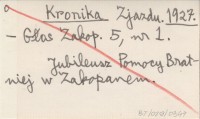 Kronika Zjazdu. 1927.
- Głos Zakop. 5, nr 1.
Jubileusz Pomocy Brat-
niej w Zakopanem.